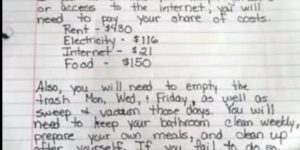 or access to the internet, you will
need to pay your share of costs.
Rent - $430
Electricity - $116
Internet - $21
Food - $150
Also, you will need to empty the
trash Mon, Wed, + Friday, as well as
sweep + vacuum those days. You will
need to keep your bathroom clean weekly,
prepare your own meals, and clean up
after yourself. If you fail to do so